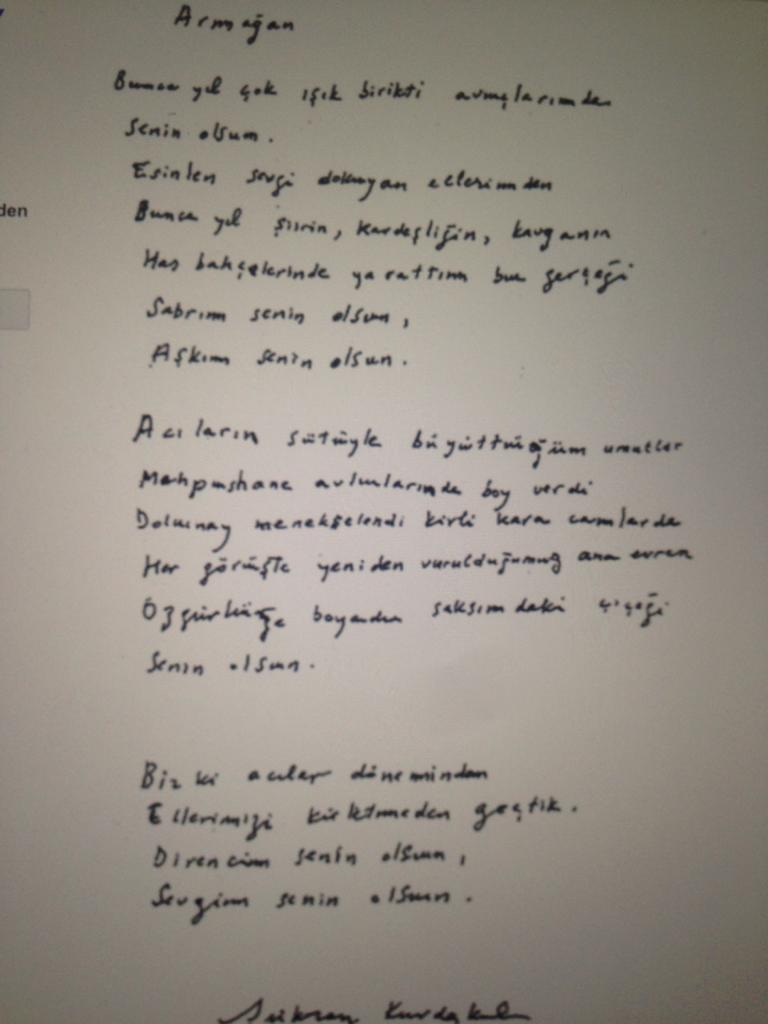 Armağan
Bunca yıl çok ışık birikti avuçlarımda
Senin olsun.
Esinlen sevgi dokuyan ellerimden
Bunca yıl şiirin, kardeşliğin, kavganın
Has bahçelerinde yarattım bu gerçeği
Sabrım senin olsun,
Aşkım senin olsun.
Acıların sütüyle büyüttüğüm umutlar
Mahpushane avlularında boy verdi
Dolunay menekşelendi kirli kara camlarda
Her görüşte yeniden vurulduğumuz ana evren
Özgürlüğe boyadı saksımdaki çiçeği
Senin olsun.
Biz ki acılar döneminden
Ellerimizi kirletmeden geçtik.
Direncim senin olsun,
Sevgim senin olsun.
Şükran Kurdakul
den